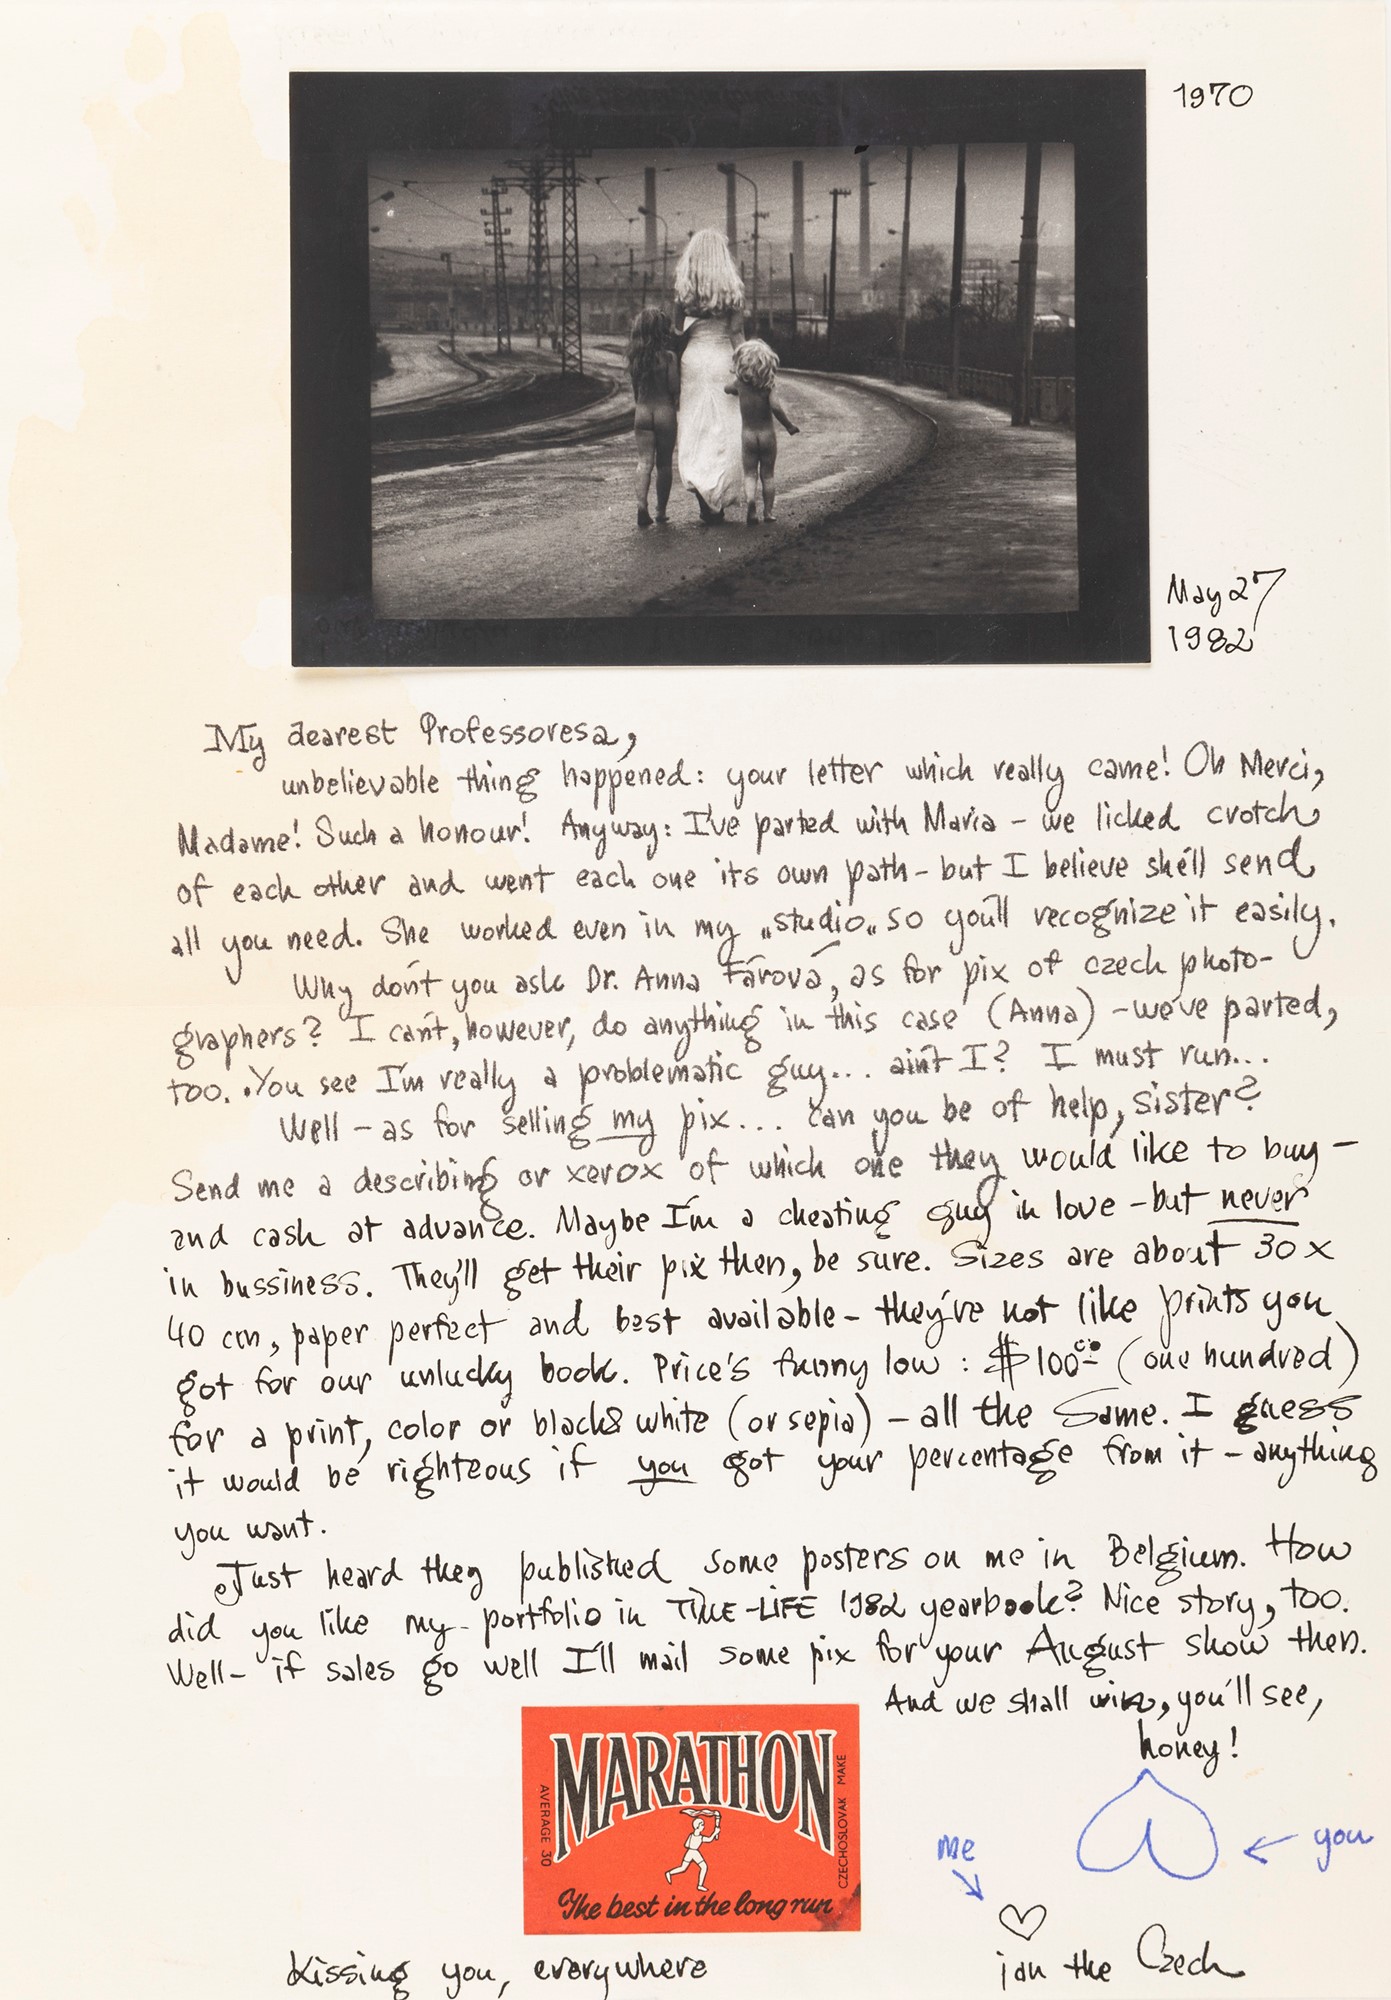 1970
May 27
1982
My dearest Professoresa,
unbelievable thing happened: your letter which really came! Oh Merci,
Madame! Such a honour! Anyway: I've parted with Maria – we licked crotch
of each other and went each one its own path – but I believe she'll send
all you need. She worked even in my „studio„ so you'll recognize it easily.
Why don't you ask Dr. Anna Fárová, as for pix of czech photo-
graphers? I can't, however, do anything in this case (Anna) – we've parted,
too. You see I'm really a problematic guy... ain't I? I must run...
Well – as for selling my pix... can you be of help, sister?
Send me a describing or xerox of which one they would like to buy –
and cash at advance. Maybe I'm a cheating guy in love – but never
in bussiness. They'll get their pix then, be sure. Sizes are about 30 x
40 cm, paper perfect and best available – they're not like prints you
got for our unlucky book. Price's funny low : $100.00 (one hundred)
for a print, color or black & white (or sepia) – all the same. I guess
it would be righteous if you got your percentage from it – anything
you want.
Just heard they published some posters on me in Belgium. How
did you like my portfolio in TIME-LIFE 1982 yearbook? Nice story, too.
Well – if sales go well I'll mail some pix for your August show then.
And we shall win, you'll see,
honey!
MARATHON
AVERAGE 30
CZECHOSLOVAK MAKE
The best in the long run
me
you
Kissing you, everywhere
jan the Czech